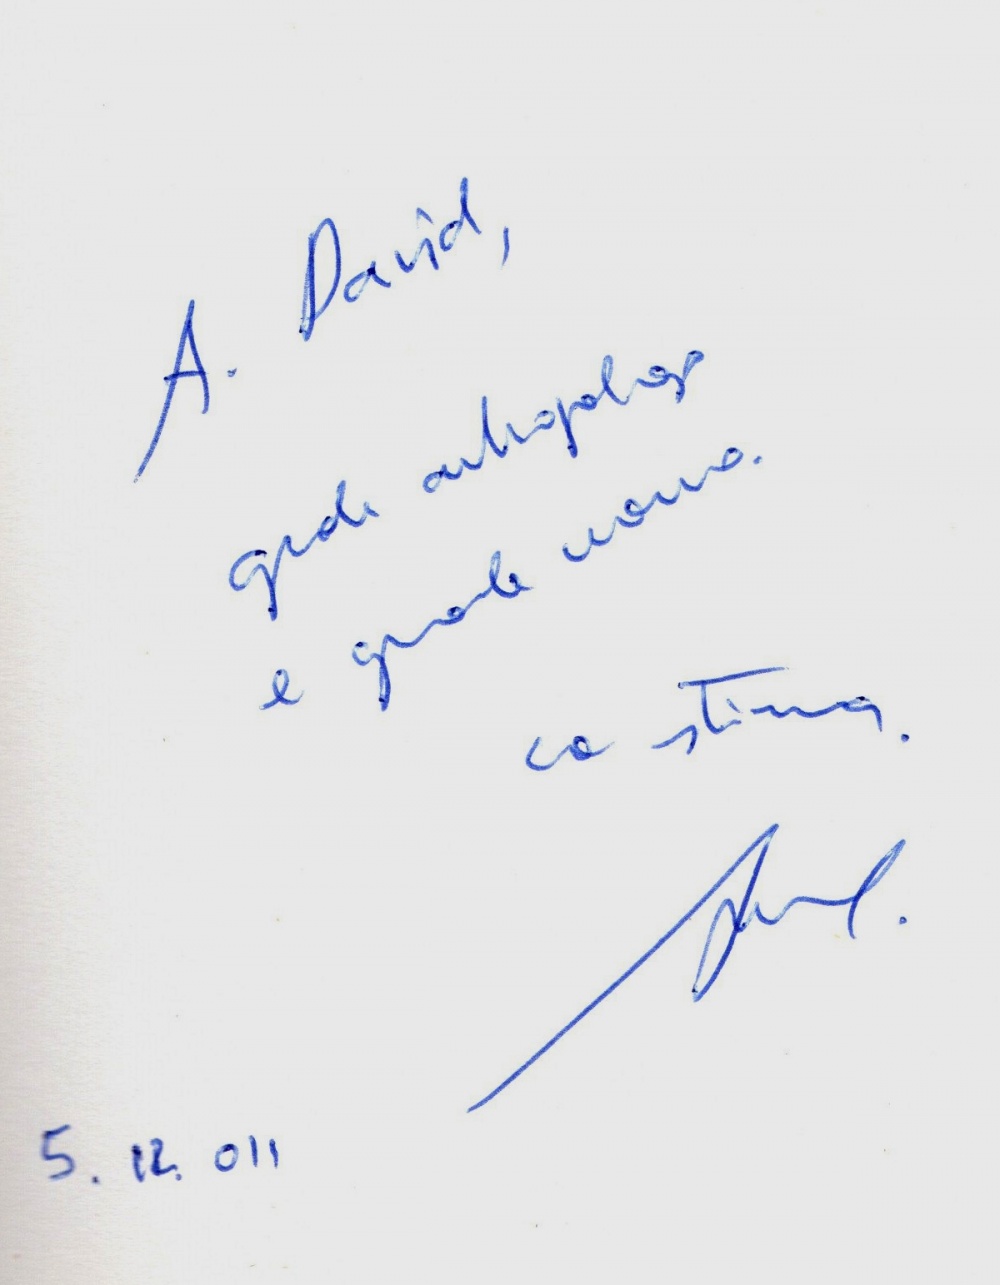 A. David,
grande antropologo
e grande uomo.
co stima.
5. 12. 011